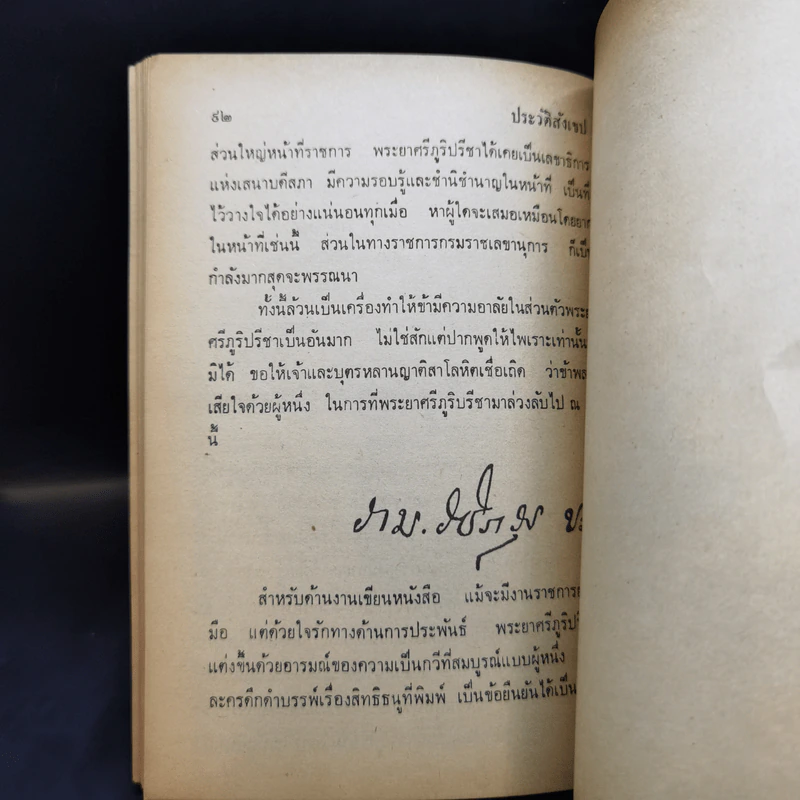 ๙๒ ประวัติสังเขป
ส่วนใหญ่หน้าที่ราชการ พระยาศรีภูริปรีชาได้เคยเป็นเลขาธิการ
แห่งเสนาบดีสภา มีความรอบรู้และชำนิชำนาญในหน้าที่ เป็นที่
ไว้วางใจได้อย่างแน่นอนทุกเมื่อ หาผู้ใดจะเสมอเหมือนโดยยาก
ในหน้าที่เช่นนี้ ส่วนในทางราชการกรมราชเลขานุการ ก็เป็น
กำลังมากสุดจะพรรณนา
ทั้งนี้ล้วนเป็นเครื่องทำให้ข้ามีความอาลัยในส่วนตัวพระย
ศรีภูริปรีชาเป็นอันมาก ไม่ใช่สักแต่ปากพูดให้ไพเราะเท่านั้น
มิได้ ขอให้เจ้าและบุตรหลานญาติสาโลหิตเชื่อเถิด ว่าข้าพล
เสียใจด้วยผู้หนึ่ง ในการที่พระยาศรีภูริปรีชามาล่วงลับไป ณ
นี้
สำหรับด้านงานเขียนหนังสือ แม้จะมีงานราชการ
มือ แต่ด้วยใจรักทางด้านการประพันธ์ พระยาศรีภูริปรี
แต่งขึ้นด้วยอารมณ์ของความเป็นกวีที่สมบูรณ์แบบผู้หนึ่ง
ละครดึกดำบรรพ์เรื่องสิทธิธนูที่พิมพ์ เป็นข้อยืนยันได้เป็น